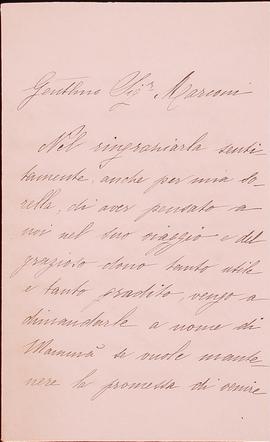 Gentilmo Sigr Marconi
Nel ringraziarla senti-
tamente, anche per mia so-
rella, di aver pensato a
noi nel suo viaggio e del
grazioso dono tanto utile
e tanto gradito, vengo a
dimandarle a nome di
Mammà se vuole mante-
nere la promessa di venire